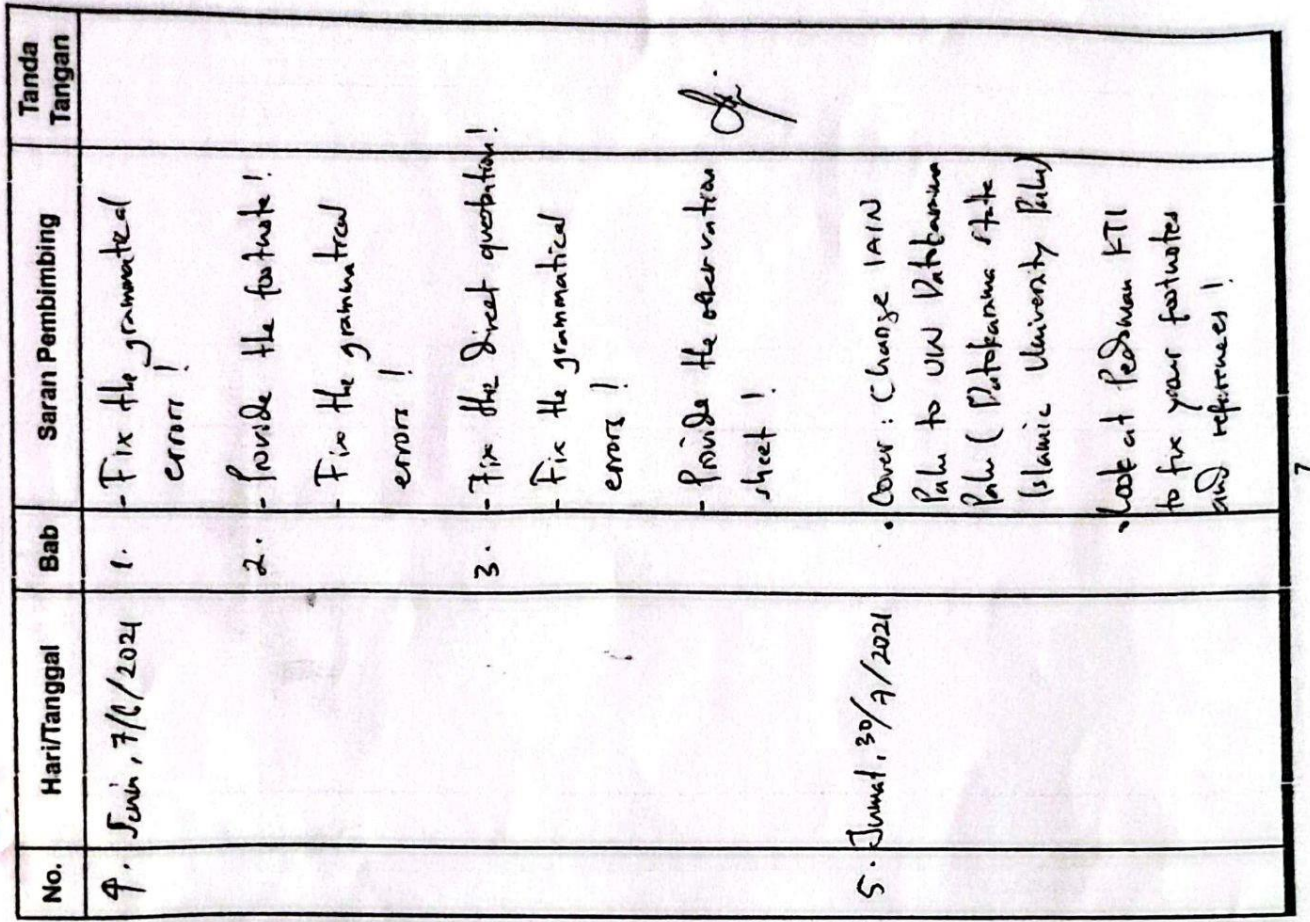 No. Hari/Tanggal Bab Saran Pembimbing Tanda Tangan
4. Senin, 7/6/2021 1. - Fix the grammatical
errors!
2. - Provide the footnote!
- Fix the grammatical
errors!
3. - Fix the direct quotation!
- Fix the grammatical
errors!
- Provide the observation
sheet!
5. Jumat, 30/7/2021 • Cover: Change IAIN
Palu to UIN Datokarama
Palu (Datokarama State
Islamic University Palu)
• Look at Pedoman KTI
to fix your footnotes
and references!
7